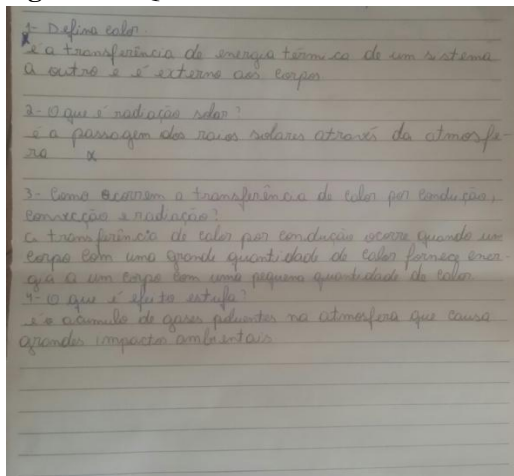 1- Defina calor.
x
é a transferência de energia térmica de um sistema
a outro e é externo aos corpos
2- O que é radiação solar?
é a passagem dos raios solares através da atmosfe-
ra x
3- Como ocorrem a transferência de calor por condução,
convecção e radiação?
a transferência de calor por condução ocorre quando um
corpo com uma grande quantidade de calor fornece ener-
gia a um corpo com uma pequena quantidade de calor
4- O que é efeito estufa?
é o acumulo de gases poluentes na atmosfera que causa
grandes impactos ambientais